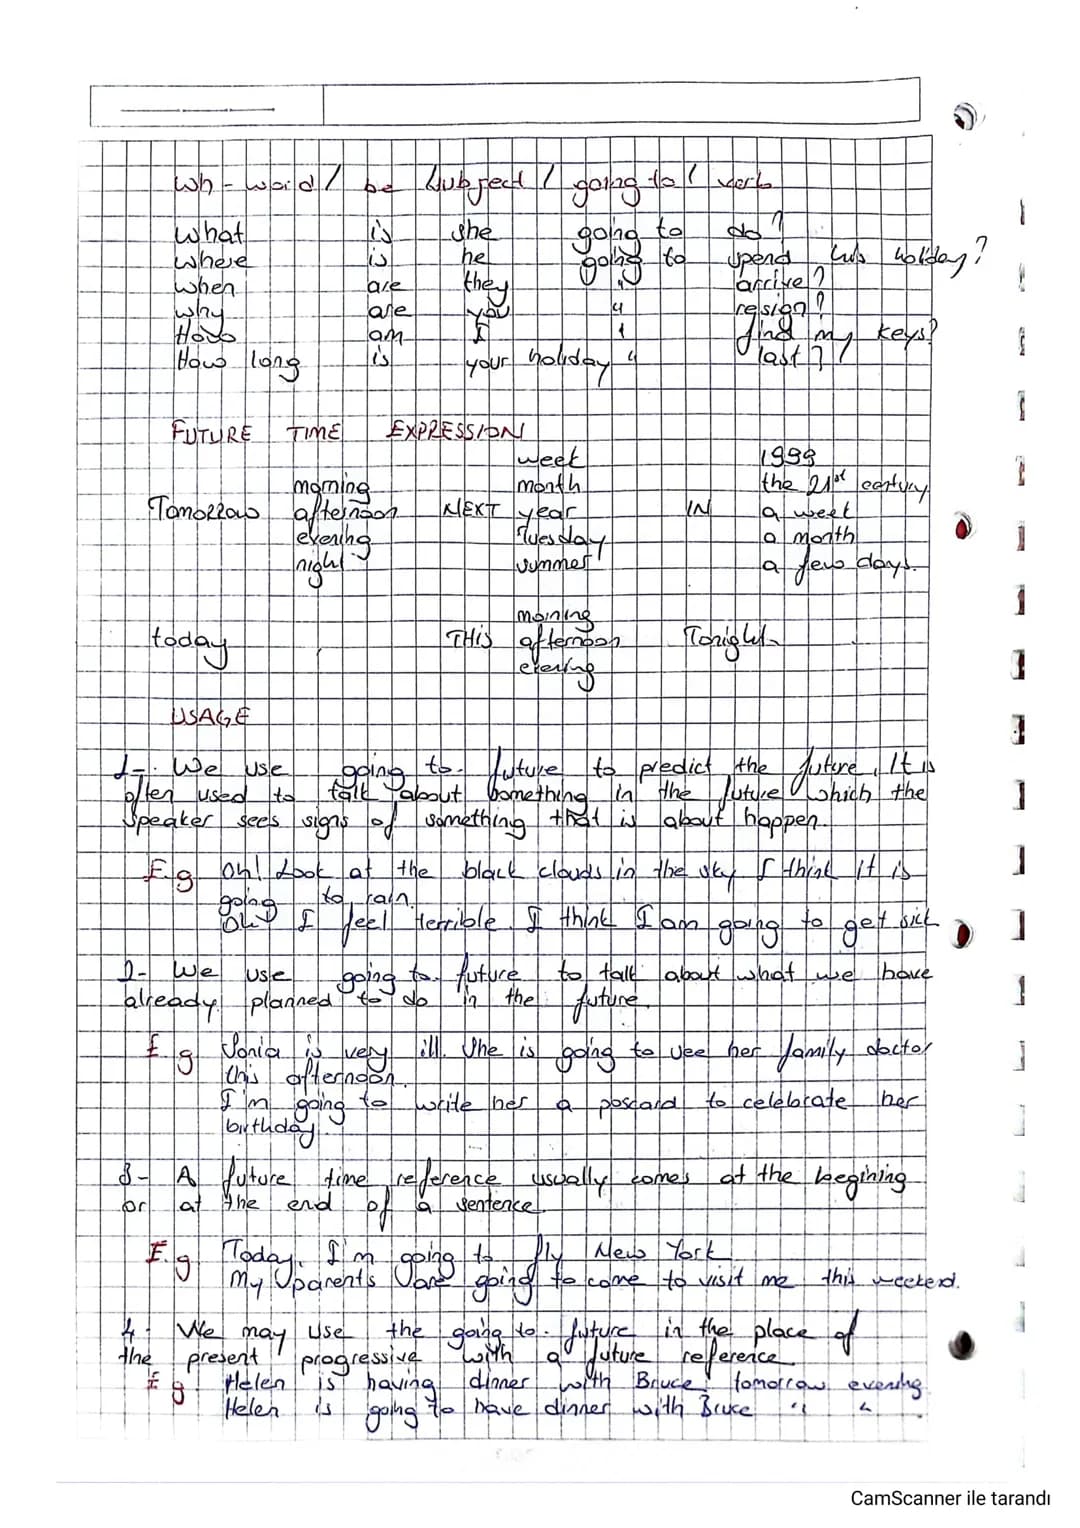 Wh - word / be Subject / going to / verb
What is she going to do?
where is he going to spend his holiday?
when are they " arrive?
why are you " resign?
How am I " find my keys?
How long is your holiday " last?
FUTURE TIME EXPRESSION
week 1999
morning month the 21st century
Tomorrow afternoon NEXT year IN a week
evening Tuesday a month
night summer a few days.
morning
today THIS afternoon Tonight
evening
USAGE
1-. We use going to. future to predict the future. It is
often used to talk about something in the future which the
speaker sees signs of something that is about happen.
E.g Oh! Look at the black clouds in the sky I think it is
going to rain.
Oh I feel terrible. I think I am going to get sick
2- We use going to. future to talk about what we have
already planned to do in the future.
E.g Sonia is very ill. She is going to see her family doctor
this afternoon.
I'm going to write her a poscard to celebrate her
birthday.
3- A future time reference usually comes at the begining
or at the end of a sentence.
E.g Today, I'm going to fly New York
My parents are going to come to visit me this weekend.
4- We may use the going to. future in the place of
the present progressive with a future reference
E g Helen is having dinner with Bruce tomorrow evening
Helen is going to have dinner with Bruce " "
CamScanner ile tarandı